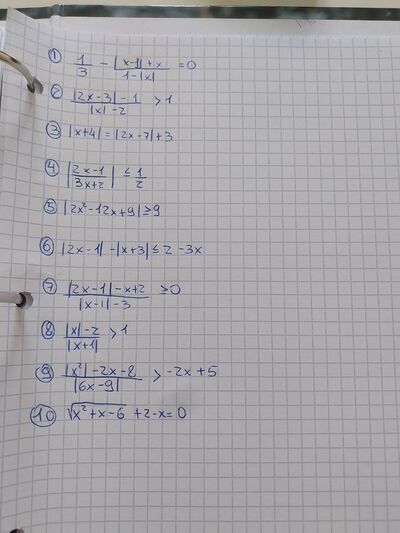 ① 1/3 - |x-1|+x / 1-|x| = 0
② |2x-3|-1 / |x|-2 > 1
③ |x+4| = |2x-7|+3
④ |2x-1 / 3x+2| ≤ 1/2
⑤ |2x²-12x+9| ≥ 9
⑥ |2x-1| - |x+3| ≤ 2-3x
⑦ |2x-1|-x+2 / |x-1|-3 ≥ 0
⑧ |x|-2 / |x+1| > 1
⑨ |x²|-2x-8 / |6x-9| > -2x+5
⑩ √x²+x-6 + 2-x = 0